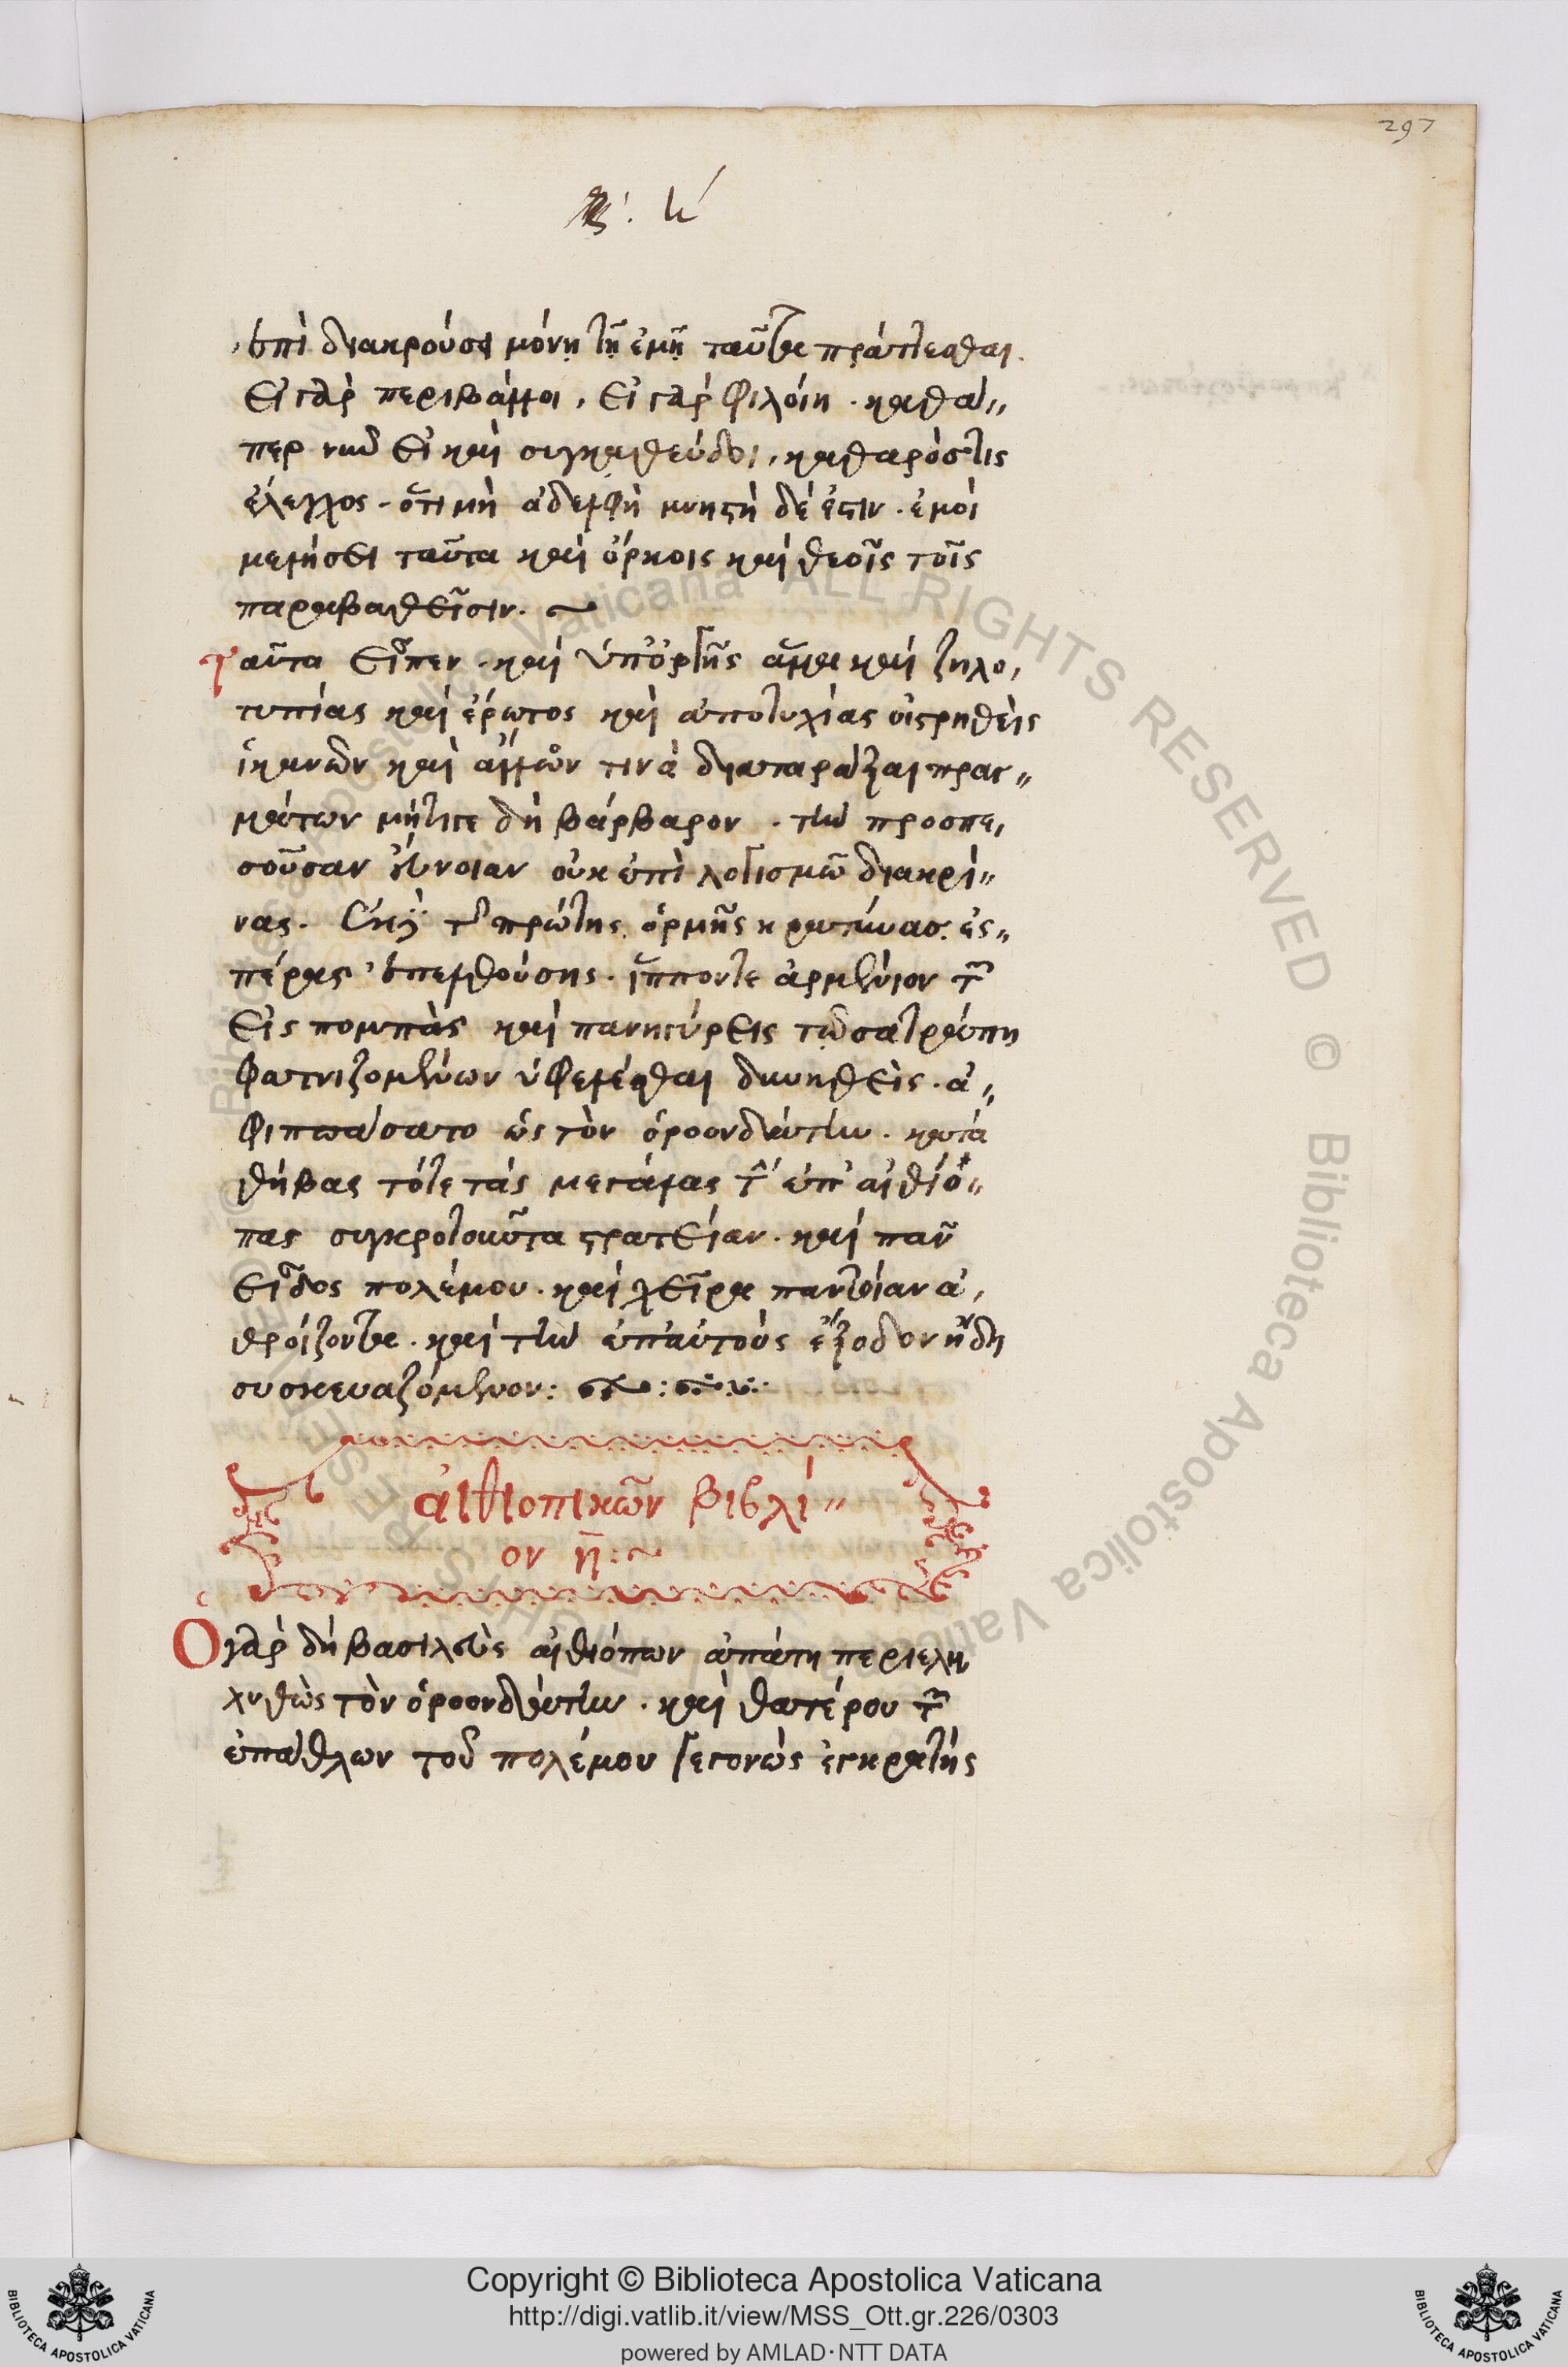 297
κ´
ἐπὶ διακρούσει μόνῃ τῇ ἐμῇ ταῦτα πράττεσθαι.
εἰ γὰρ περιβάλλοι, εἰ γὰρ φιλοίη. καθά〃
περ νῦν εἰ καὶ συγκαθεύδοι, καθαρός τις
ἔλεγχος. ὅτι μὴ ἀδελφὴ μνηστὴ δέ ἐστιν. ἐμοὶ
μελήσει ταῦτα καὶ ὅρκοις καὶ θεοῖς τοῖς
παραβαθεῖσιν. ~
Ταῦτα εἶπεν. καὶ ὑπ' ὀργῆς ἅμα καὶ ζηλο,
τυπίας καὶ ἔρωτος καὶ ἀποτυχίας οἰστρηθεὶς
ἱκανῶν καὶ ἄλλόν τινὰ διαταράξαι πραγ〃
μάτων μήτιγε δὴ βάρβαρον. τὴν προσπε,
σοῦσαν ἔννοιαν οὐκ ἐπὶ λογισμῶ διακρί〃
νας. ἐκ τῆς πρώτης ὁρμῆς κρατύνας. ἑσ〃
πέρας ἐπελθούσης. ἵππον τε ἀρμένιον τῶν
εἰς πομπὰς καὶ πανηγύρεις τῷ σατράπη
φατνιζομένων ὑφελέσθαι δυνηθεὶς. ἀ〃
φιππάσατο ὡς τὸν ὀροονδάτην. κατὰ
θήβας τότε τὰς μεγάλας τὴν ἐπ' αἰθίο〃
πας συγκροτοῦντα στρατείαν. καὶ πᾶν
εἶδος πολέμου. καὶ χεῖρα παντοίαν ἀ,
θροίζοντα. καὶ τὴν ἐπ' αὐτοὺς ἔξοδον ἤδη
συσκευαζόμενον:
αἰθιοπικῶν βιβλί〃
ον η̅: ~
Ὁ γὰρ δὴ βασιλεὺς αἰθιόπων ἀπάτη περιελη
λυθὼς τὸν ὀροονδάτην. καὶ θατέρου τῶν
ἐπάθλων τοῦ πολέμου γεγονὼς ἐγκρατὴς
Copyright © Biblioteca Apostolica Vaticana
http://digi.vatlib.it/view/MSS_Ott.gr.226/0303
powered by AMLAD·NTT DATA
BIBLIOTECA APOSTOLICA VATICANA
BIBLIOTECA APOSTOLICA VATICANA
© Biblioteca Apostolica Vaticana ALL RIGHTS RESERVED
© Biblioteca Apostolica Vaticana ALL RIGHTS RESERVED